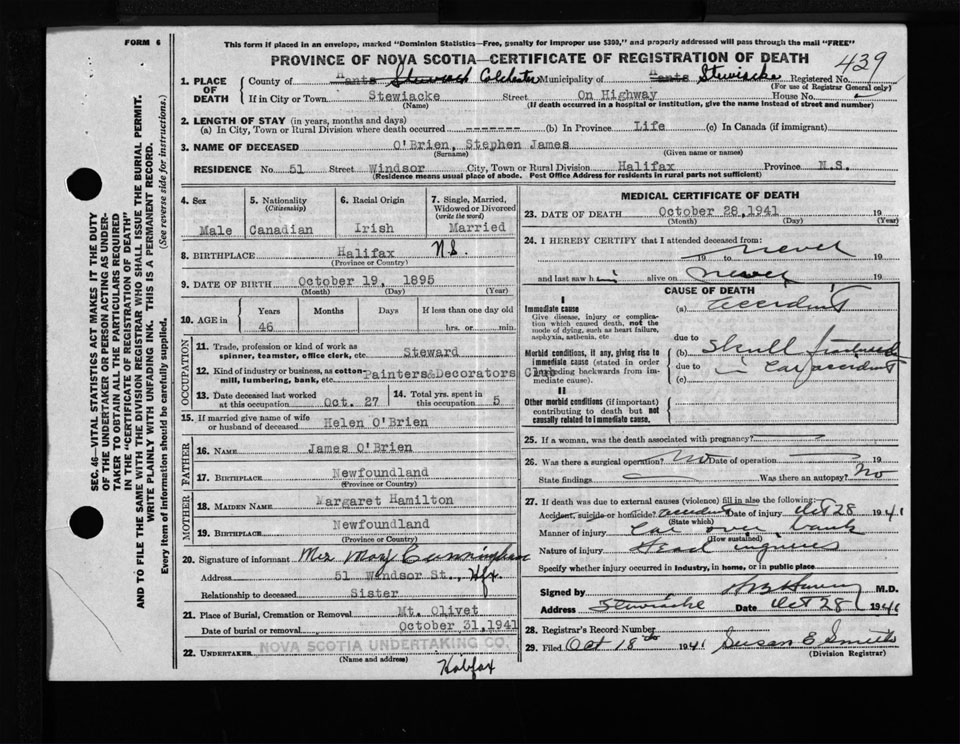 FORM 6
This form if placed in an envelope, marked "Dominion Statistics—Free, penalty for improper use $300," and properly addressed will pass through the mail "FREE"
PROVINCE OF NOVA SCOTIA—CERTIFICATE OF REGISTRATION OF DEATH
439
1. PLACE OF DEATH County of Hants Colchester Municipality of Hants Stewiacke Registered No.
(For use of Registrar General only)
If in City or Town Stewiacke Street On Highway House No.
(Name) (If death occurred in a hospital or institution, give the name instead of street and number)
2. LENGTH OF STAY (in years, months and days)
(a) In City, Town or Rural Division where death occurred ------- (b) In Province Life (c) In Canada (if immigrant)
3. NAME OF DECEASED O'Brien, Stephen James
(Surname) (Given name or names)
RESIDENCE No. 51 Street Windsor City, Town or Rural Division Halifax Province N.S.
(Residence means usual place of abode. Post Office Address for residents in rural parts not sufficient)
4. Sex
Male
5. Nationality (Citizenship)
Canadian
6. Racial Origin
Irish
7. Single, Married, Widowed or Divorced (write the word)
Married
8. BIRTHPLACE Halifax N.S.
(Province or Country)
9. DATE OF BIRTH October 19, 1895
(Month) (Day) (Year)
10. AGE in Years Months Days If less than one day old
46 hrs. or min.
OCCUPATION
11. Trade, profession or kind of work as spinner, teamster, office clerk, etc. Steward
12. Kind of industry or business, as cotton-mill, lumbering, bank, etc. Painters&Decorators Club
13. Date deceased last worked at this occupation Oct. 27
14. Total yrs. spent in this occupation 5
15. If married give name of wife or husband of deceased Helen O'Brien
FATHER
16. NAME James O'Brien
17. BIRTHPLACE Newfoundland
(Province or Country)
MOTHER
18. MAIDEN NAME Margaret Hamilton
19. BIRTHPLACE Newfoundland
(Province or Country)
20. Signature of informant Mrs May Cunningham
Address 51 Windsor St., Hfx.
Relationship to deceased Sister
21. Place of Burial, Cremation or Removal Mt. Olivet
Date of burial or removal October 31, 1941
22. UNDERTAKER NOVA SCOTIA UNDERTAKING CO.
(Name and address)
Halifax
MEDICAL CERTIFICATE OF DEATH
23. DATE OF DEATH October 28, 1941 19
(Month) (Day) (Year)
24. I HEREBY CERTIFY that I attended deceased from:
never
19 to 19
and last saw him alive on never 19
CAUSE OF DEATH
I
Immediate cause
Give disease, injury or complication which caused death, not the mode of dying, such as heart failure, asphyxia, asthenia, etc
(a) accident
due to
Morbid conditions, if any, giving rise to immediate cause (stated in order proceeding backwards from immediate cause).
(b) skull fractured
due to in car accident
(c)
II
Other morbid conditions (if important) contributing to death but not causally related to immediate cause.
25. If a woman, was the death associated with pregnancy?
26. Was there a surgical operation? No Date of operation 19
State findings Was there an autopsy? No
27. If death was due to external causes (violence) fill in also the following:
Accident, suicide or homicide? accident Date of injury Oct 28 1941
(State which)
Manner of injury Car over bank
(How sustained)
Nature of injury Head injuries
Specify whether injury occurred in industry, in home, or in public place
Signed by M.D.
Address Stewiacke Date Oct 28 1941
28. Registrar's Record Number
29. Filed Oct 18 1941 Susan E Smith
(Division Registrar)
SEC. 46—VITAL STATISTICS ACT MAKES IT THE DUTY
OF THE UNDERTAKER OR PERSON ACTING AS UNDER-
TAKER TO OBTAIN ALL THE PARTICULARS REQUIRED
IN THE "CERTIFICATE OF REGISTRATION OF DEATH"
AND TO FILE THE SAME WITH THE DIVISION REGISTRAR WHO SHALL ISSUE THE BURIAL PERMIT.
WRITE PLAINLY WITH UNFADING INK. THIS IS A PERMANENT RECORD.
Every item of information should be carefully supplied. (See reverse side for instructions.)